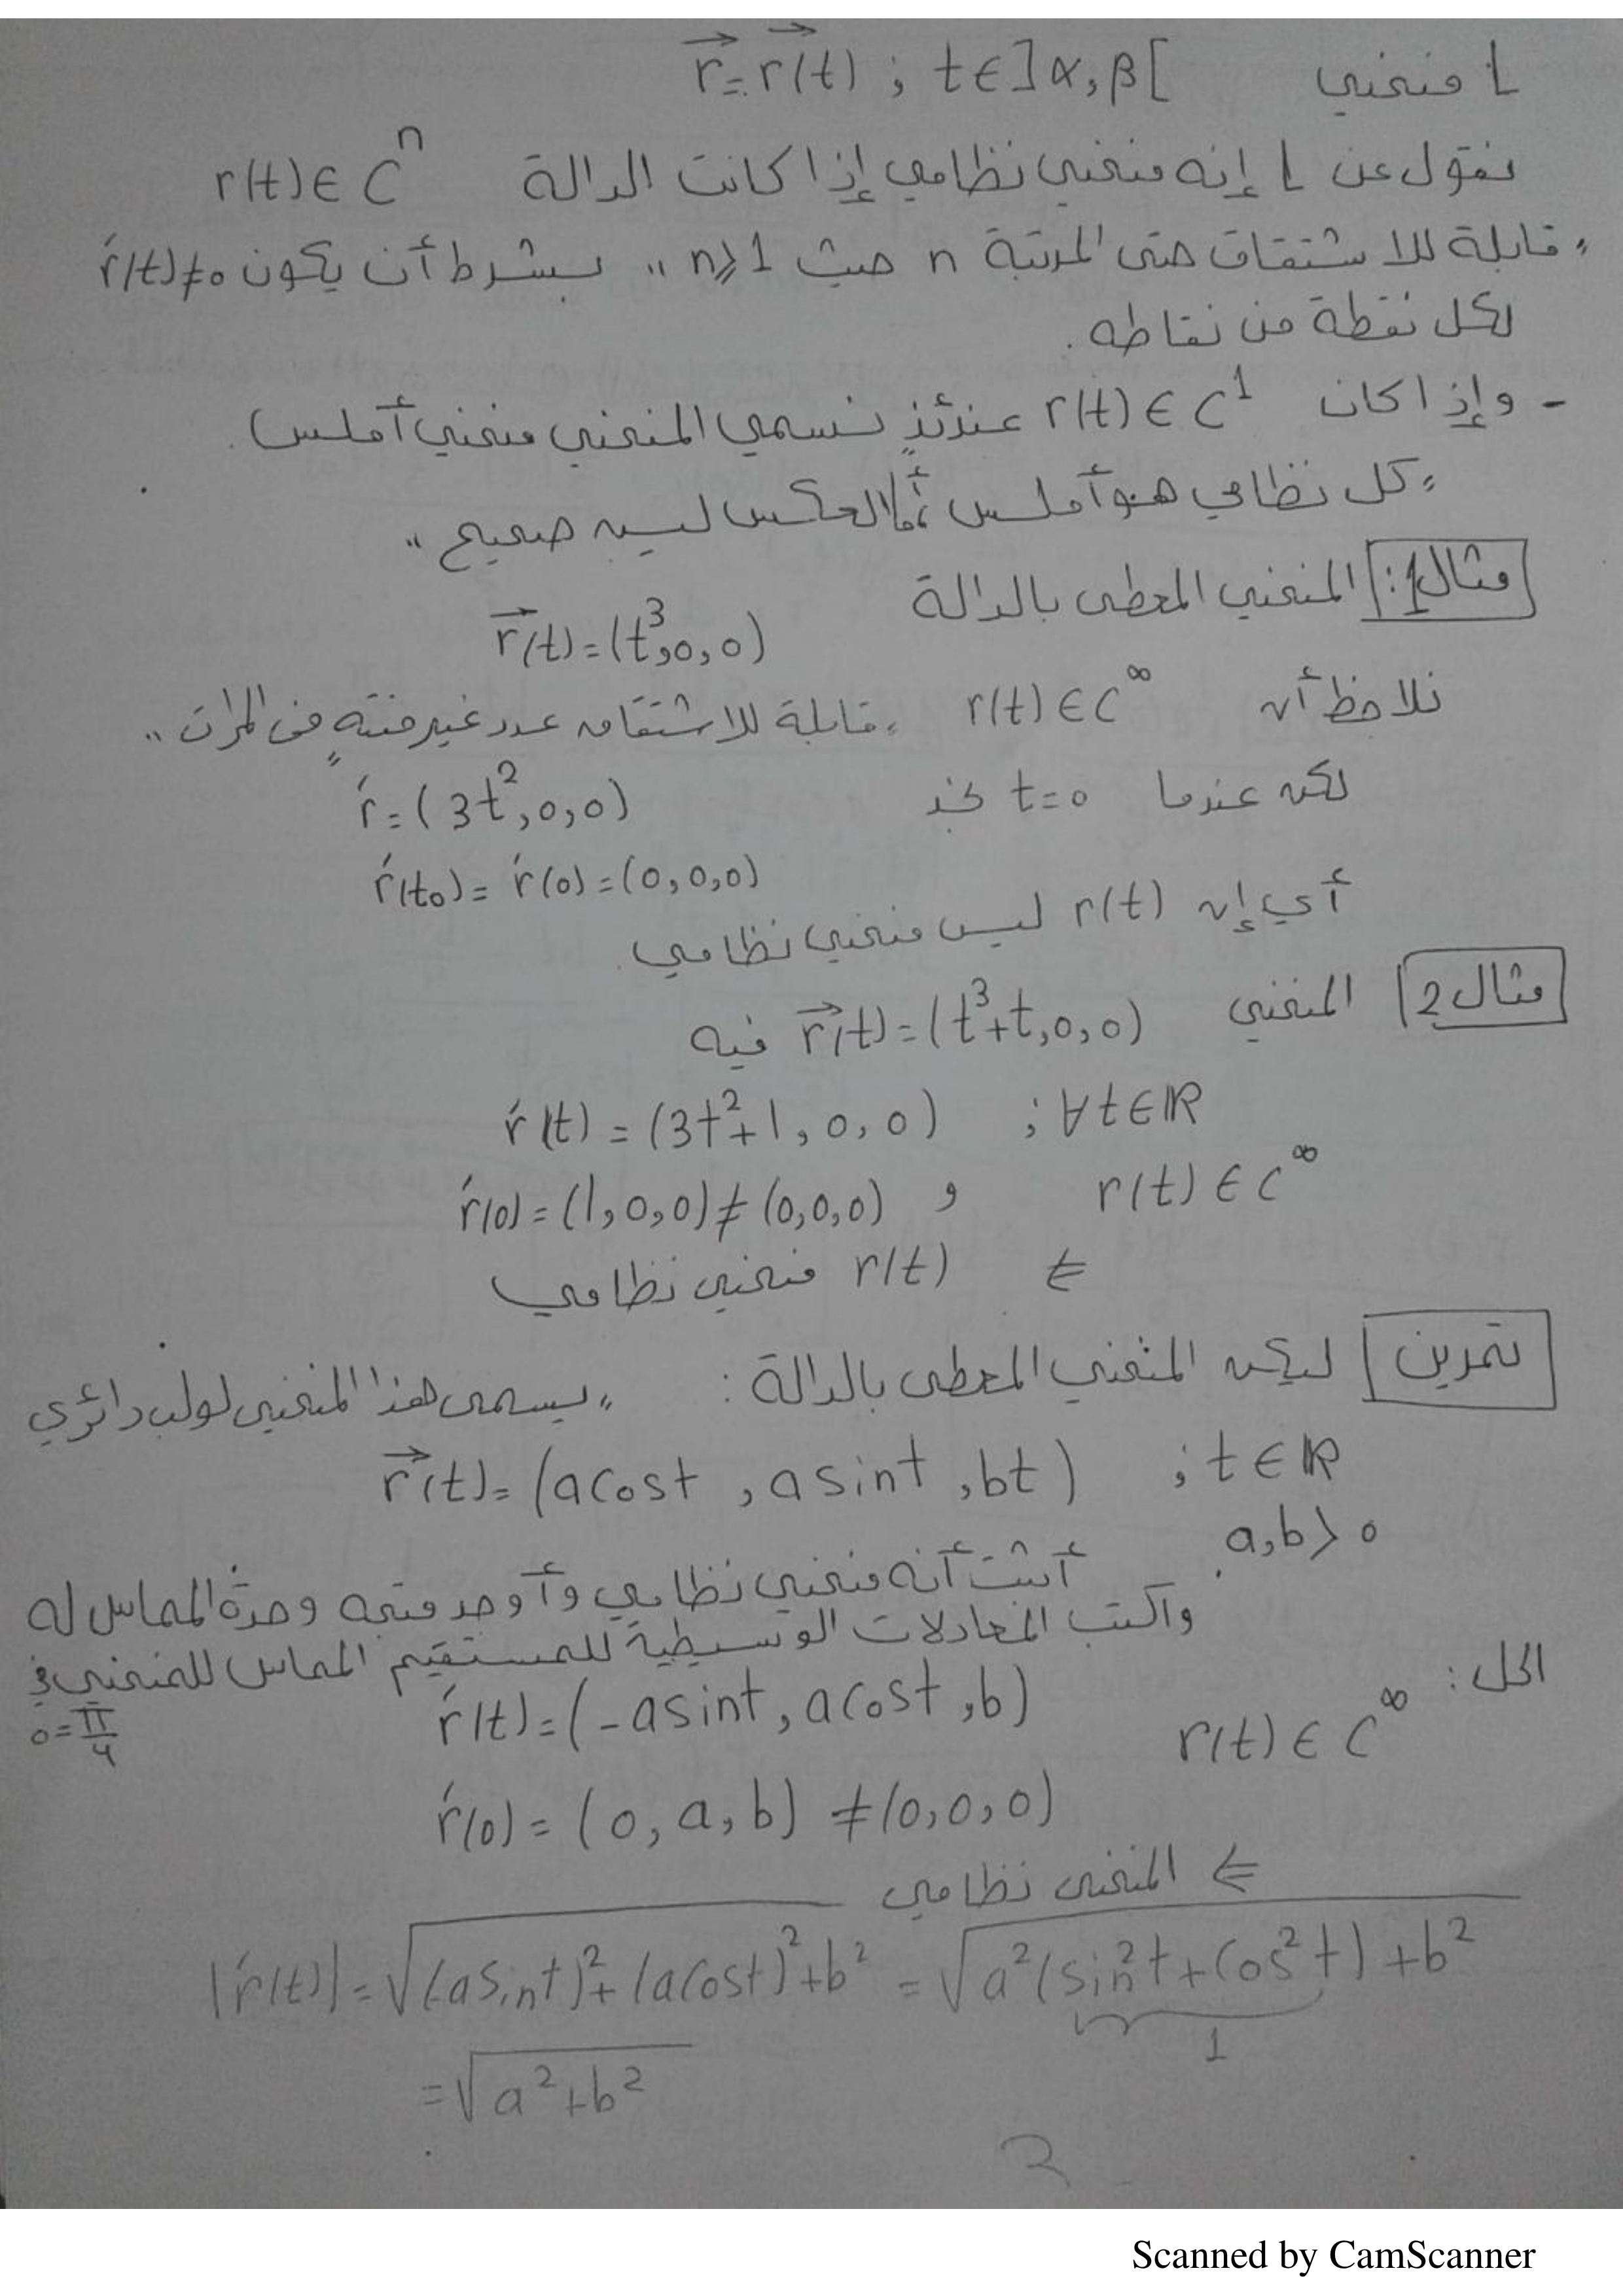 L منحني r⃗ = r⃗(t) ; t∈]α,β[
نقول عن L إنه منحني نظامي إذا كانت الدالة r(t) ∈ Cⁿ
"قابلة للاشتقاق حتى المرتبة n حيث n⩾1" بشرط أن يكون ŕ(t)≠0
لكل نقطة من نقاطه.
- وإذا كان r(t) ∈ C¹ عندئذٍ نسمي المنحني منحني أملس.
"كل نظامي هو أملس أما العكس ليس صحيح"
مثال 1: المنحني المعطى بالدالة
r⃗(t) = (t³,0,0)
نلاحظ أن r(t) ∈ C^∞ "قابلة للاشتقاق عدد غير منتهٍ من المرات"
لكن عندما t=0 نجد ŕ = (3t²,0,0)
ŕ(t₀) = ŕ(0) = (0,0,0)
أي إن r(t) ليس منحني نظامي.
مثال 2 المنحني r⃗(t) = (t³+t,0,0) فيه
ŕ(t) = (3t²+1,0,0) ; ∀t∈ℝ
r(t) ∈ C^∞ و ŕ(0) = (1,0,0) ≠ (0,0,0)
⇐ r(t) منحني نظامي
تمرين ليكن المنحني المعطى بالدالة: "يسمى هذا المنحني لولب دائري
r⃗(t) = (a cos t , a sin t , bt) ; t ∈ ℝ
a,b > 0.
أثبت أنه منحني نظامي وأوجد متجه وحدة المماس له
واكتب المعادلات الوسيطية للمستقيم المماس للمنحني في
0 = π/4
الحل: r(t) ∈ C^∞ ŕ(t) = (-a sin t , a cos t , b)
ŕ(0) = (0,a,b) ≠ (0,0,0)
⇐ المنحني نظامي
|ŕ(t)| = √((-a sin t)² + (a cos t)² + b²) = √(a²(sin²t + cos²t) + b²)
1
= √(a²+b²)
2
Scanned by CamScanner